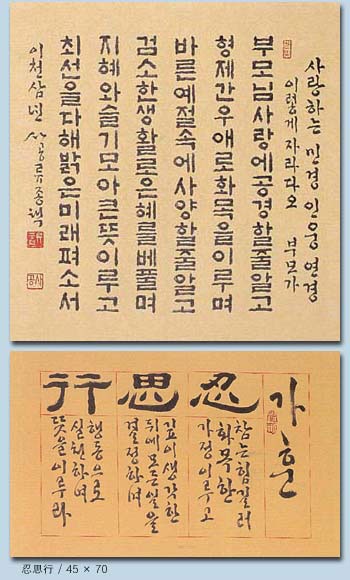 사랑하는 민경 인웅 연경
이렇게 자라다오 부모가
부모님사랑에공경할줄알고
형제간우애로화목을이루며
바른예절속에사양할줄알고
검소한생활로은혜를베풀며
지혜와슬기모아큰뜻이루고
최선을다해밝은미래펴소서
이천삼년 사공 류종택
가훈
忍思行
참는 힘 길러
화목한
가정 이루고
깊이 생각한
뒤에 모든 일을
결정하며
행동으로
실천하여
뜻을 이루라
忍思行 / 45 × 70